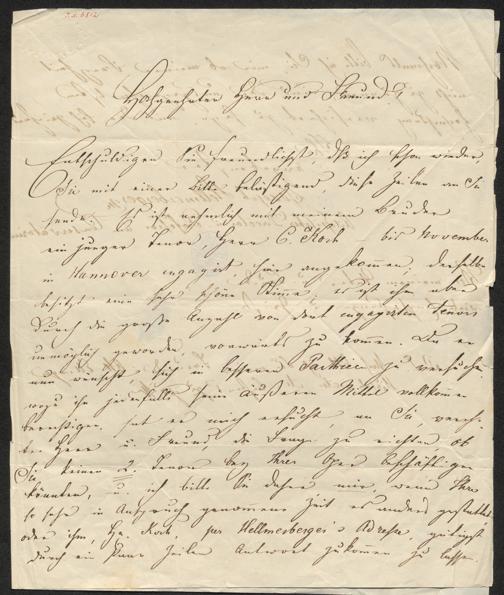 Hochgeehrter Herr und Freund!
Entschuldigen Sie freundlichst, daß ich schon wieder
Sie mit einer Bitte belästigend diese Zeilen an Sie
sende. Es ist nehmlich mit meinem Bruder
ein junger Tenor, Herr C. Koch bis November
in Hannover engagirt hier angekommen; derselbe
besitzt eine sehr schöne Stimme, es ist ihm aber
durch die große Anzahl von dort engagirten Tenors
unmöglich geworden, vorwärts zu kommen. Da er
nun wünscht, sich in besseren Parthien zu versuchen
wozu ihn jedenfalls seine äußeren Mittel vollkommen
berechtigen, hat er mich ersucht, an Sie, verehr-
ter Herr u. Freund, die Frage zu richten ob
Sie keinen 2. Tenor bey Ihrer Oper beschäftigen
könnten, u. ich bitte Sie daher mir, wenn Ihre
so sehr in Anspruch genommene Zeit es anders gestattet
oder ihm, He. Koch, per Hellmesberger's Adresse, gütigst
durch ein Paar Zeilen Antwort zukommen zu lassen.